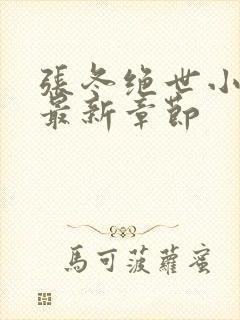 張冬绝世小
最新章節
馬可菠蘿蜜